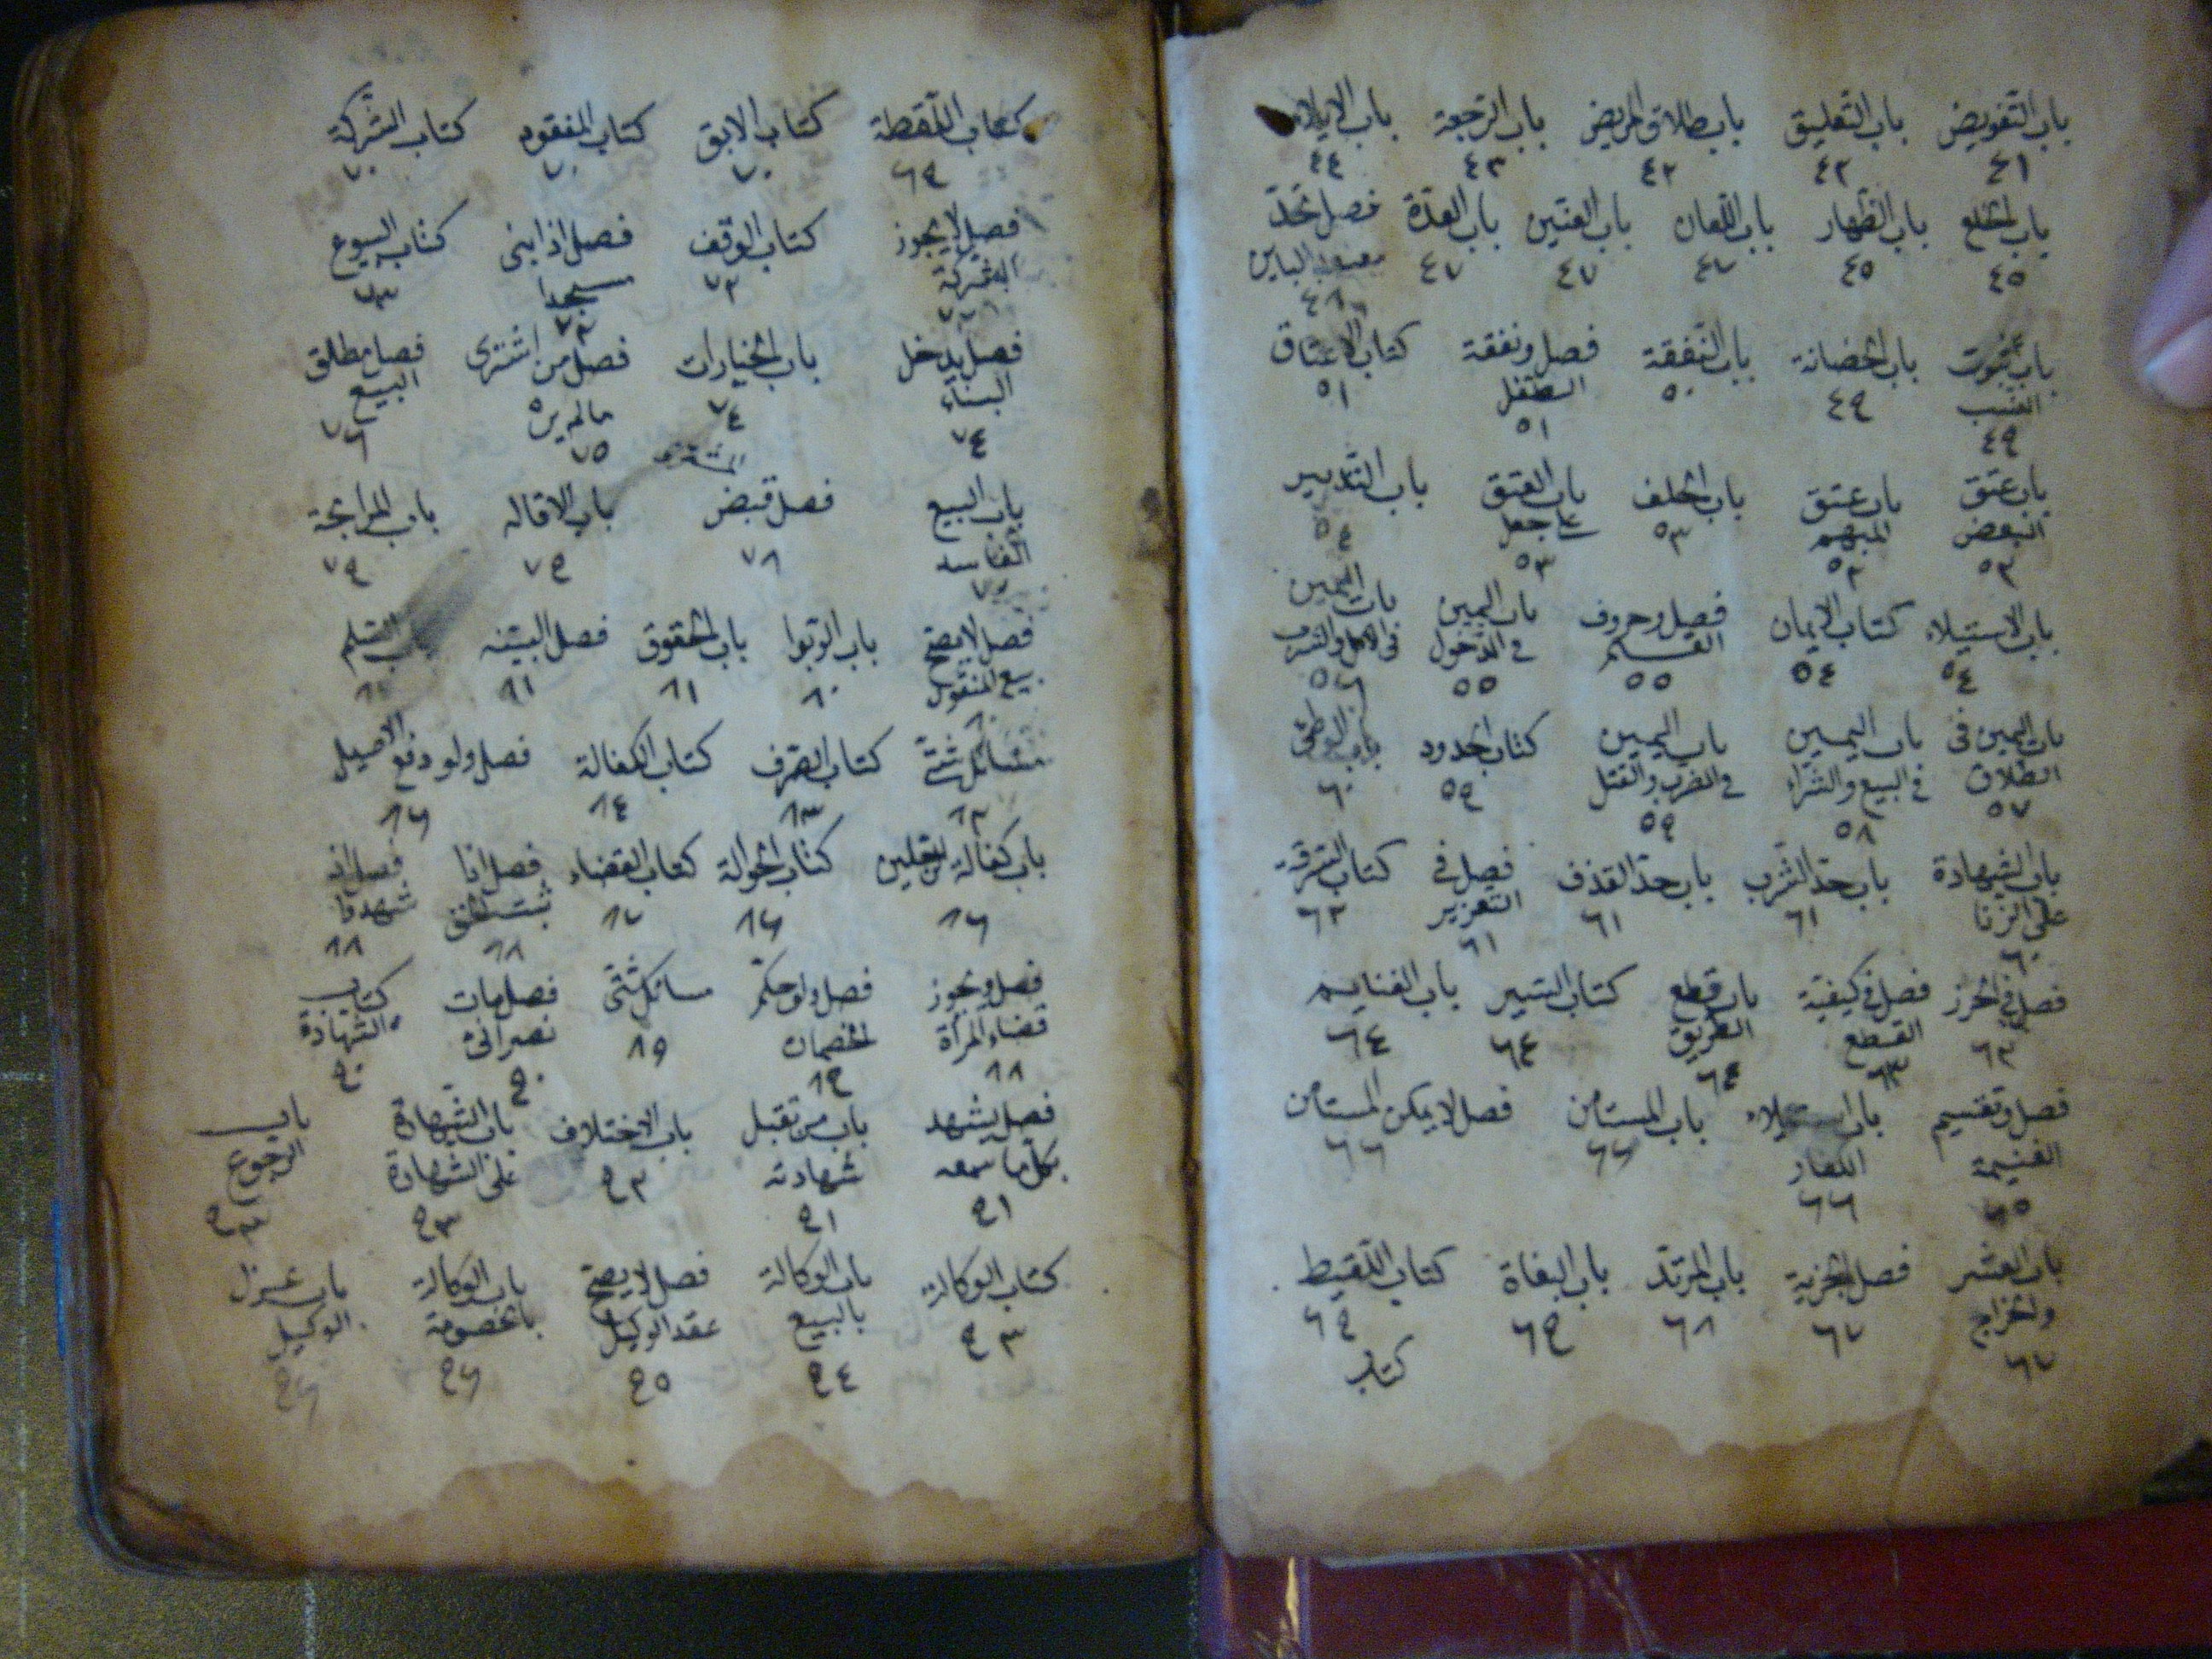 باب التفويض باب التعليق باب طلاق المريض باب الرجعة باب الايلاء
٤١ ٤٢ ٤٢ ٤٣ ٤٤
باب الخلع باب الظهار باب اللعان باب العنين باب العدة فصل تحد
معتدة الباين
٤٥ ٤٥ ٤٧ ٤٧ ٤٧ ٤٨
باب ثبوت باب الحضانة باب النفقة فصل ونفقة كتاب الاعتاق
النسب الطفل
٤٩ ٤٩ ٥٠ ٥١ ٥١
باب عتق باب عتق باب الحلف باب العتق باب التدبير
البعض المبهم على جعل
٥٣ ٥٣ ٥٣ ٥٣ ٥٤
باب الاستيلاء كتاب الايمان فصل وحروف باب اليمين باب اليمين
القسم في الدخول في الاكل والشرب
٥٤ ٥٤ ٥٥ ٥٥ ٥٦
باب اليمين في باب اليمين باب اليمين كتاب الحدود باب الوطئ
الطلاق في البيع والشراء في الضرب والقتل
٥٧ ٥٨ ٥٩ ٥٩ ٦٠
باب الشهادة باب حد الشرب باب حد القذف فصل في كتاب السرقة
على الزنا التعزير
٦٠ ٦١ ٦١ ٦١ ٦٢
فصل في الحرز فصل في كيفية باب قطع كتاب السير باب الغنايم
القطع الطريق
٦٣ ٦٣ ٦٤ ٦٤ ٦٤
فصل وتقسيم باب استيلاء باب المستامن فصل لا يمكن المستامن
الغنيمة الكفار
٦٥ ٦٦ ٦٦ ٦٦
باب العشر فصل الجزية باب المرتد باب البغاة كتاب اللقيط
والخراج
٦٧ ٦٧ ٦٨ ٦٩ ٦٩
كتاب
كتاب اللقطة كتاب الابق كتاب المفقود كتاب الشركة
٦٩ ٧٠ ٧٠ ٧٠
فصل لا يجوز كتاب الوقف فصل اذا بنى كتاب البيوع
الشركة مسجدا
٧٢ ٧٢ ٧٣
فصل يدخل باب الخيارات فصل من اشترى فصل مطلق
البناء مالم يره البيع
٧٤ ٧٤ ٧٥ ٧٦
المشترى
باب البيع فصل قبض باب الاقاله باب المرابحة
الفاسد
٧٨ ٧٩ ٧٩
فصل لا يصح باب الربوا باب الحقوق فصل البينه باب السلم
بيع المنقول
٨٠ ٨٠ ٨١ ٨١
مسائل شتى كتاب الصرف كتاب الكفالة فصل ولو دفع الاصيل
٨٣ ٨٣ ٨٤ ٨٦
باب كفالة الرجلين كتاب الحوالة كتاب القضاء فصل اذا فصل اذ
ثبت الحق شهدوا
٨٦ ٨٦ ٨٧ ٨٨ ٨٨
فصل ويجوز فصل ولو حكم مسائل شتى فصل مات كتاب
قضاء المرأة الخصمان نصرانى الشهادة
٨٨ ٨٩ ٨٩ ٩٠ ٩٠
فصل يشهد باب من تقبل باب الاختلاف باب الشهادة باب
بكل ما سمعه شهادته على الشهادة الرجوع
٩١ ٩١ ٩٣ ٩٣ ٩٣
كتاب الوكالة باب الوكالة فصل لا يصح باب الوكالة باب عزل
بالبيع عقد الوكيل بالخصومة الوكيل
٩٣ ٩٤ ٩٥ ٩٦ ٩٦